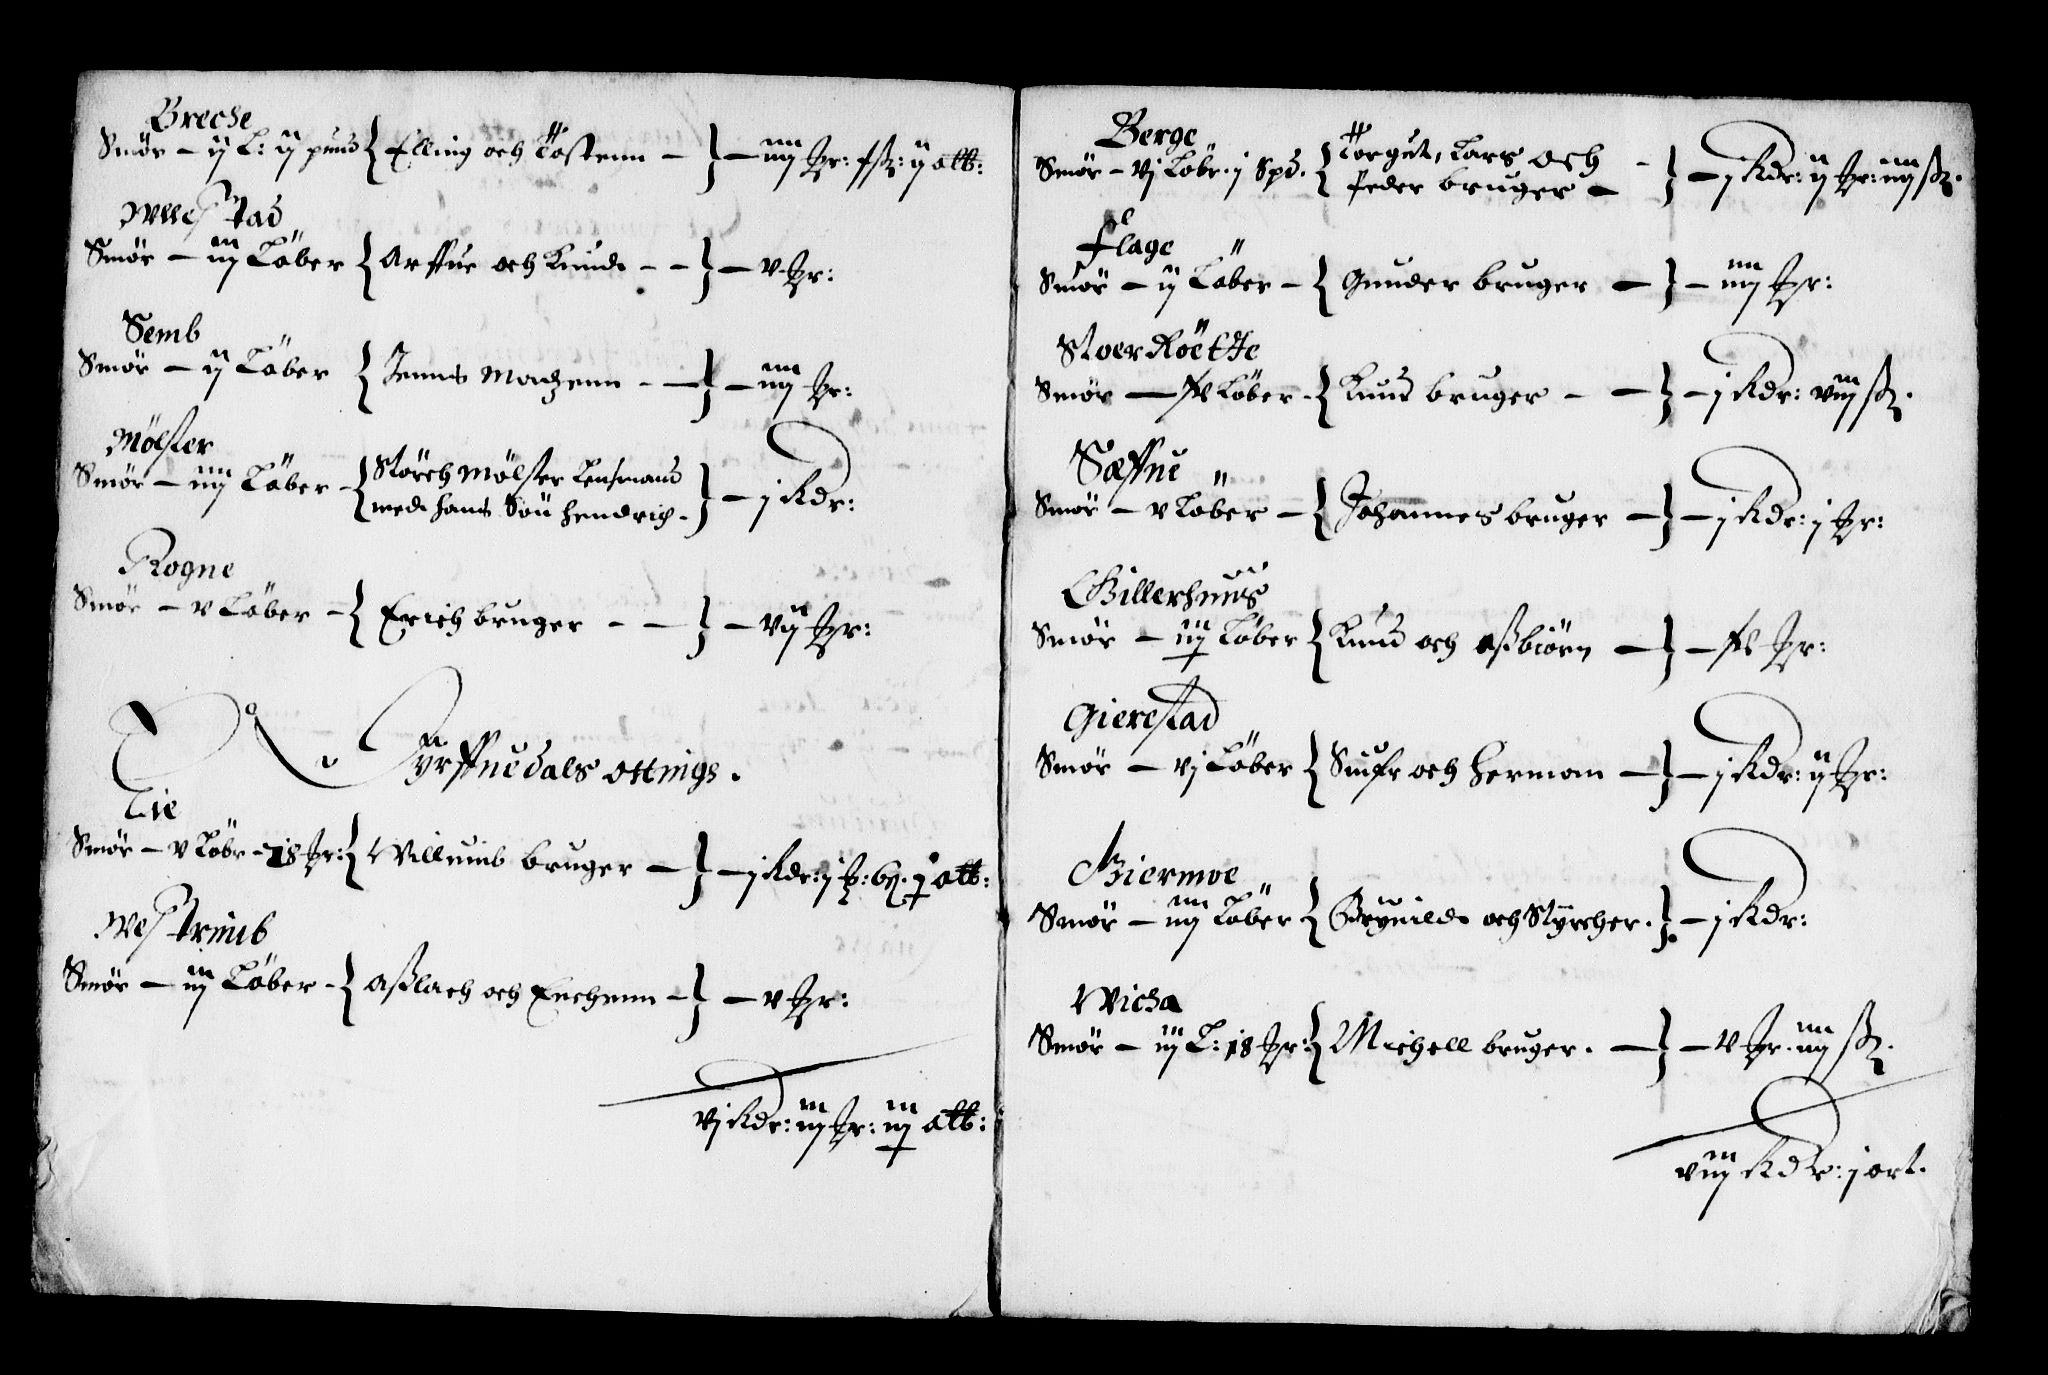 Breche
Smör – ij L: ij pund { Elling och Tostenn – } – iiij Hr: ſß: ij alb:
Wllestad
Smör – iij Löber { Arffue och Knud – – } – v Hr:
Semb
Smör – ij Löber { Jenns Madzenn – – } – iiij Hr:
Mölster
Smör – iiij Löber – { Störch Mölster Lensmand
med hans Sön Hendrich – } – j Rdr:
Rogne
Smör – v Löber – { Erich bruger – – } – vij Hr:
Dyrffuedals ottings.
Lie
Smör – v Löbr – 18 Hr: { Willumb bruger – } – j Rdr: j Hr: j alb:
Westrimb
Smör – iij Löber – { Aßlach och Enchenn – } – v Hr:
vj Rdr: iij Hr: iij alb:
Berge
Smör – vj Löbr. j Spd. { Torgut, Lars och
Peder bruger – } – j Rdr: ij Hr: iiij ß.
Flage
Smör – ij Löber – { Gunder bruger – } – iiij Hr:
Stoer Röette
Smör – Löber – { Knud bruger – – } – j Rdr: viij ß.
Sæffue
Smör – v Löber – { Johannes bruger – } – j Rdr: j Hr:
Gillerhuus
Smör – iij Löber { Knud och Aßbiörn – } – Hr:
Gierestad
Smör – vj Löber { Siufr och Herman – } – j Rdr: ij Hr:
Giermoe
Smör – iiij Löber { Brynild och Styrcher. } – j Rdr:
Wicha
Smör – iij L: 18 Hr: { Michell bruger. – } – v Hr. iiij ß.
viij Rdr: j ort.